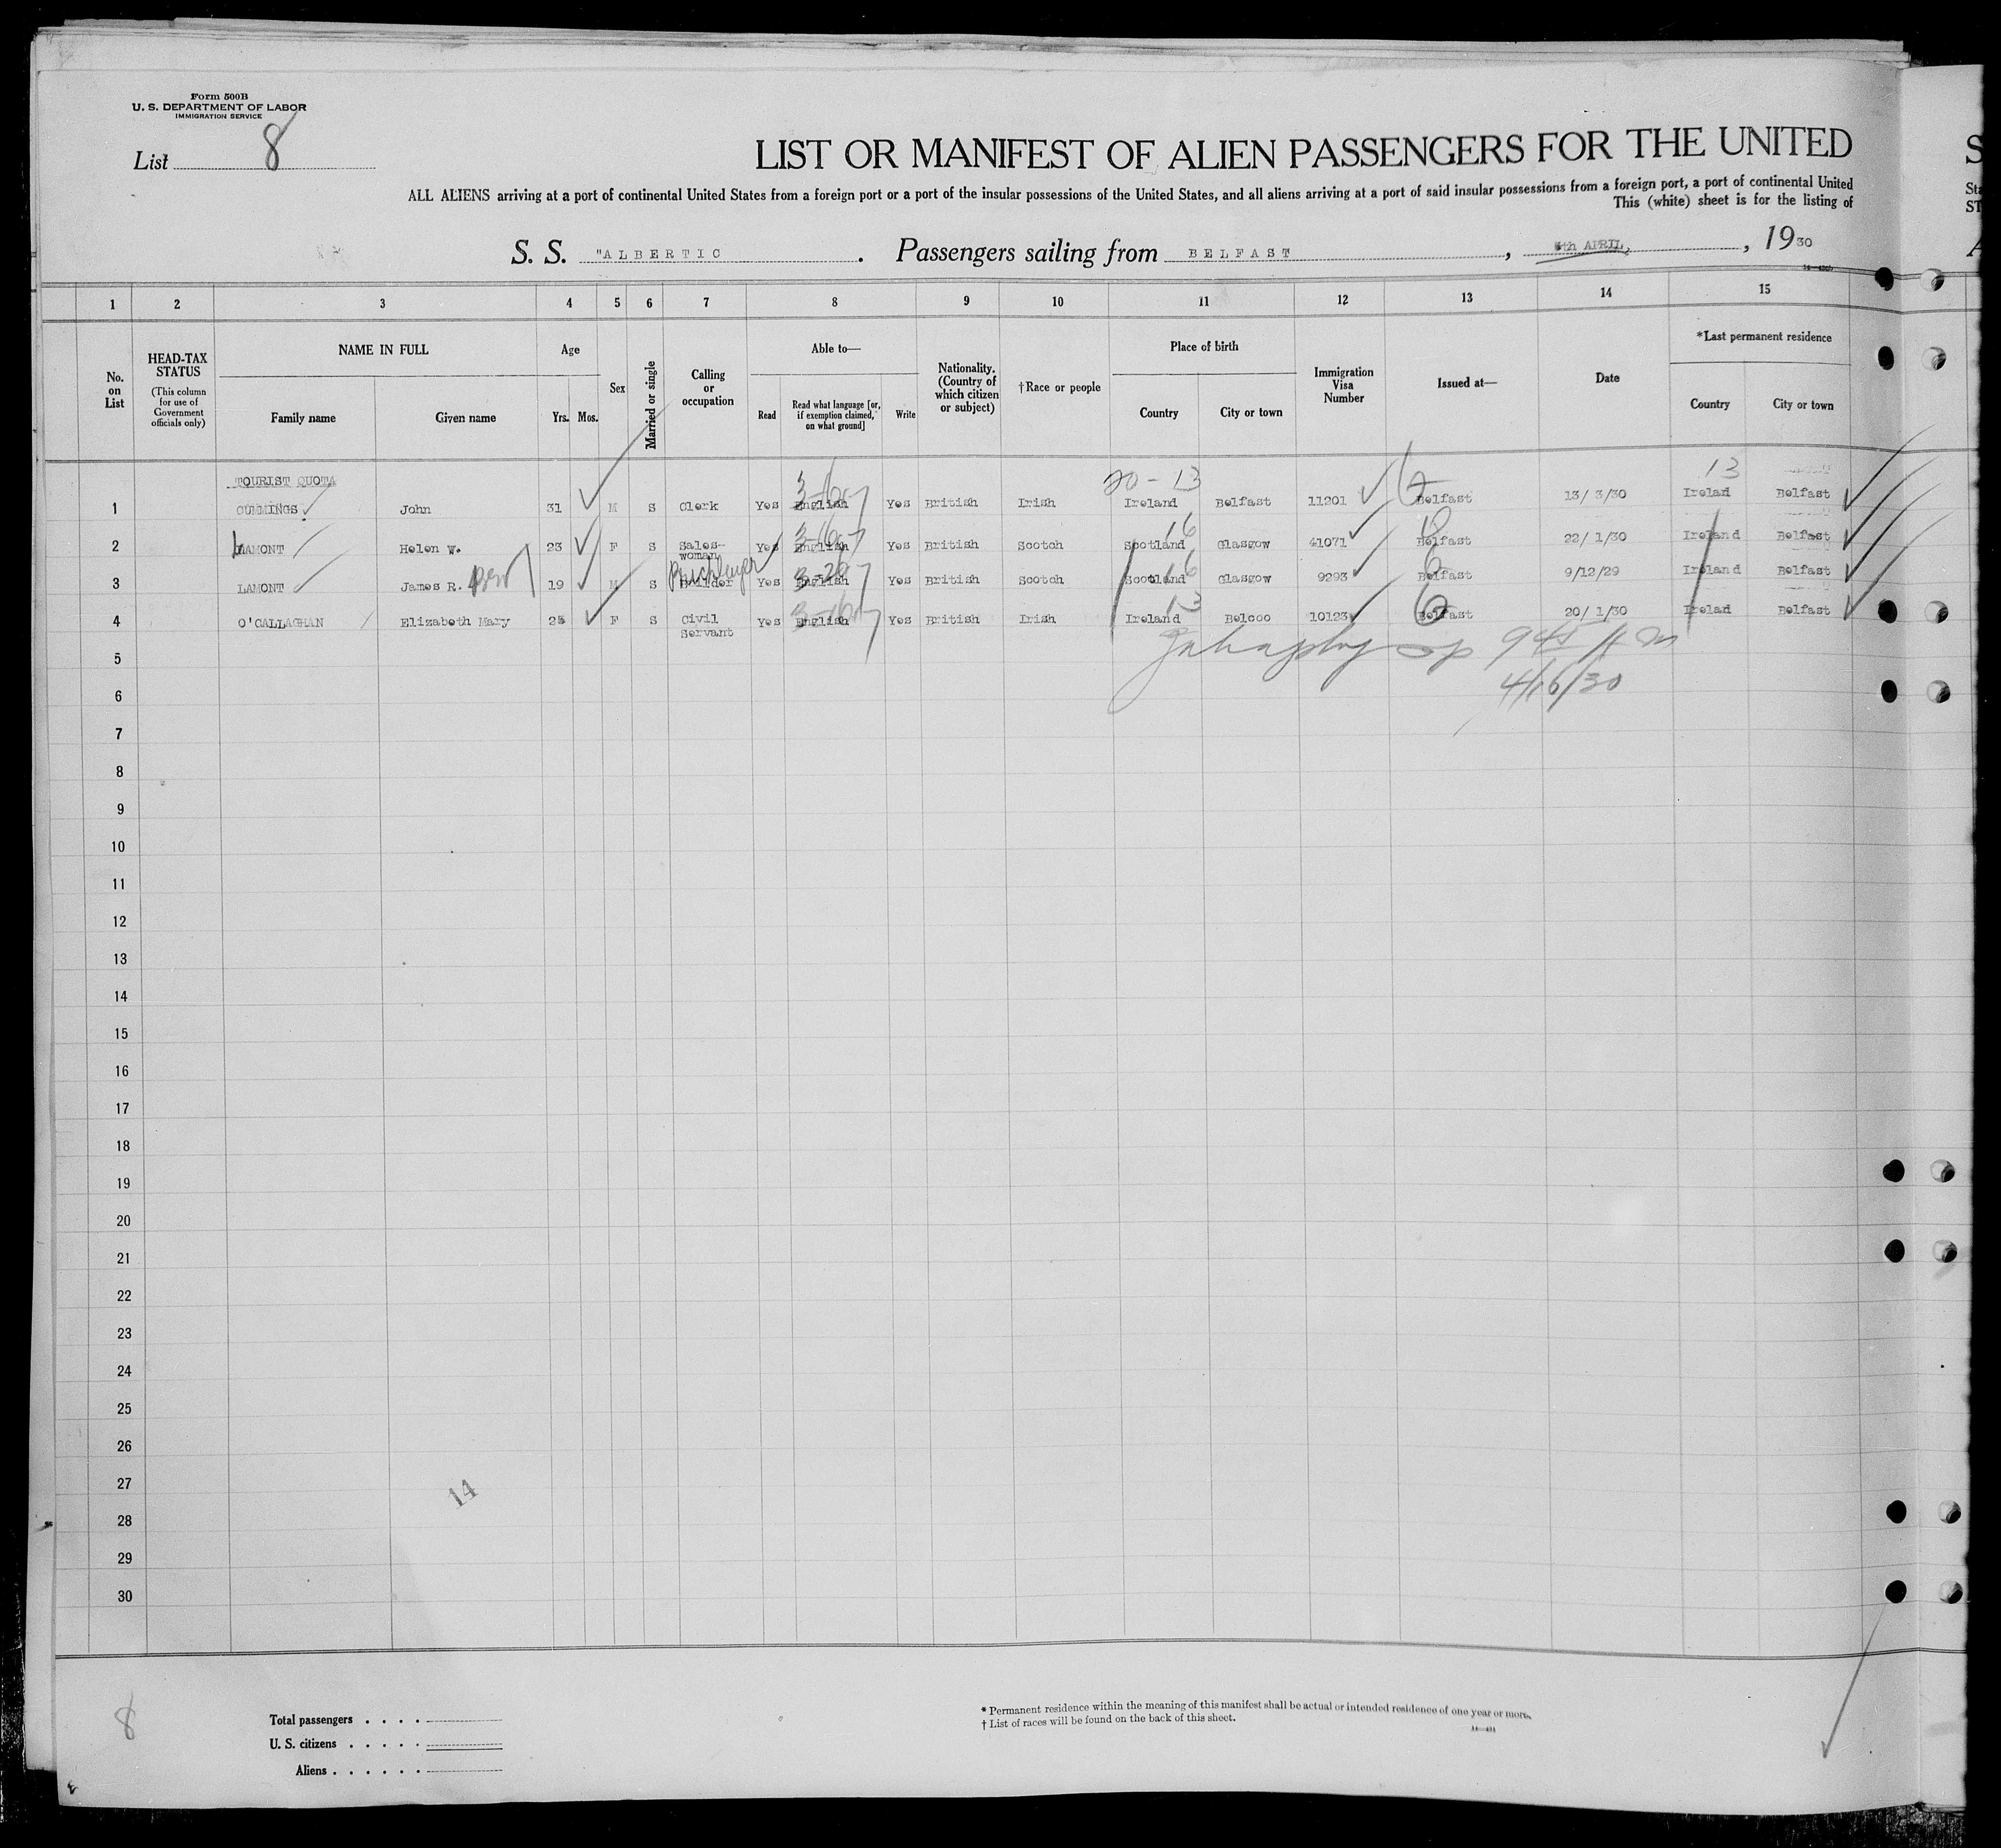 Form 500B
U. S. DEPARTMENT OF LABOR
IMMIGRATION SERVICE
List 8
LIST OR MANIFEST OF ALIEN PASSENGERS FOR THE UNITED
ALL ALIENS arriving at a port of continental United States from a foreign port or a port of the insular possessions of the United States, and all aliens arriving at a port of said insular possessions from a foreign port, a port of continental United
This (white) sheet is for the listing of
S. S. "ALBERTIC . Passengers sailing from BELFAST , APRIL, , 1930
1 2 3 4 5 6 7 8 9 10 11 12 13 14 15
No. on List
HEAD-TAX STATUS
(This column for use of Government officials only)
NAME IN FULL
Family name Given name
Age
Yrs. Mos.
Sex
Married or single
Calling or occupation
Able to—
Read
Read what language [or, if exemption claimed, on what ground]
Write
Nationality. (Country of which citizen or subject)
†Race or people
Place of birth
Country City or town
Immigration Visa Number
Issued at—
Date
*Last permanent residence
Country City or town
TOURIST QUOTA 20-13 13
1 CUMMINGS John 31 M S Clerk Yes English Yes British Irish Ireland Belfast 11201 Belfast 13/ 3/30 Ireland Belfast
2 LAMONT Helen W. 23 F S Sales-woman Yes English Yes British Scotch Scotland 16 Glasgow 41071 Belfast 22/ 1/30 Ireland Belfast
3 LAMONT James R. 19 M S Yes English Yes British Scotch Scotland 16 Glasgow 9293 Belfast 9/12/29 Ireland Belfast
4 O'CALLAGHAN Elizabeth Mary 25 F S Civil Servant Yes English Yes British Irish Ireland 13 Belcoo 10123 6 Belfast 20/ 1/30 Ireland Belfast
5 945
6 4/16/30
7
8
9
10
11
12
13
14
15
16
17
18
19
20
21
22
23
24
25
26
27
14
28
29
30
8
Total passengers . . . .
U. S. citizens . . . . .
Aliens . . . . . .
* Permanent residence within the meaning of this manifest shall be actual or intended residence of one year or more.
† List of races will be found on the back of this sheet.